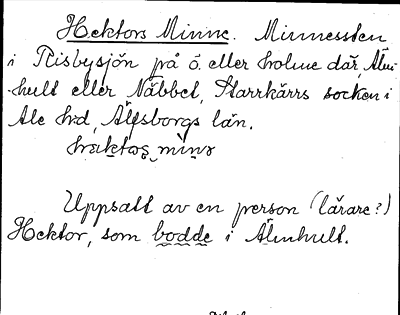 Hektors Minne. Minnessten
i Risbysjön på ö. eller holme där, Älm-
hult eller Näbbet, Starrkärrs socken i
Ale hd, Älfsborgs län.
Uppsatt av en person (lärare?)
Hektor, som bodde i Älmhult.